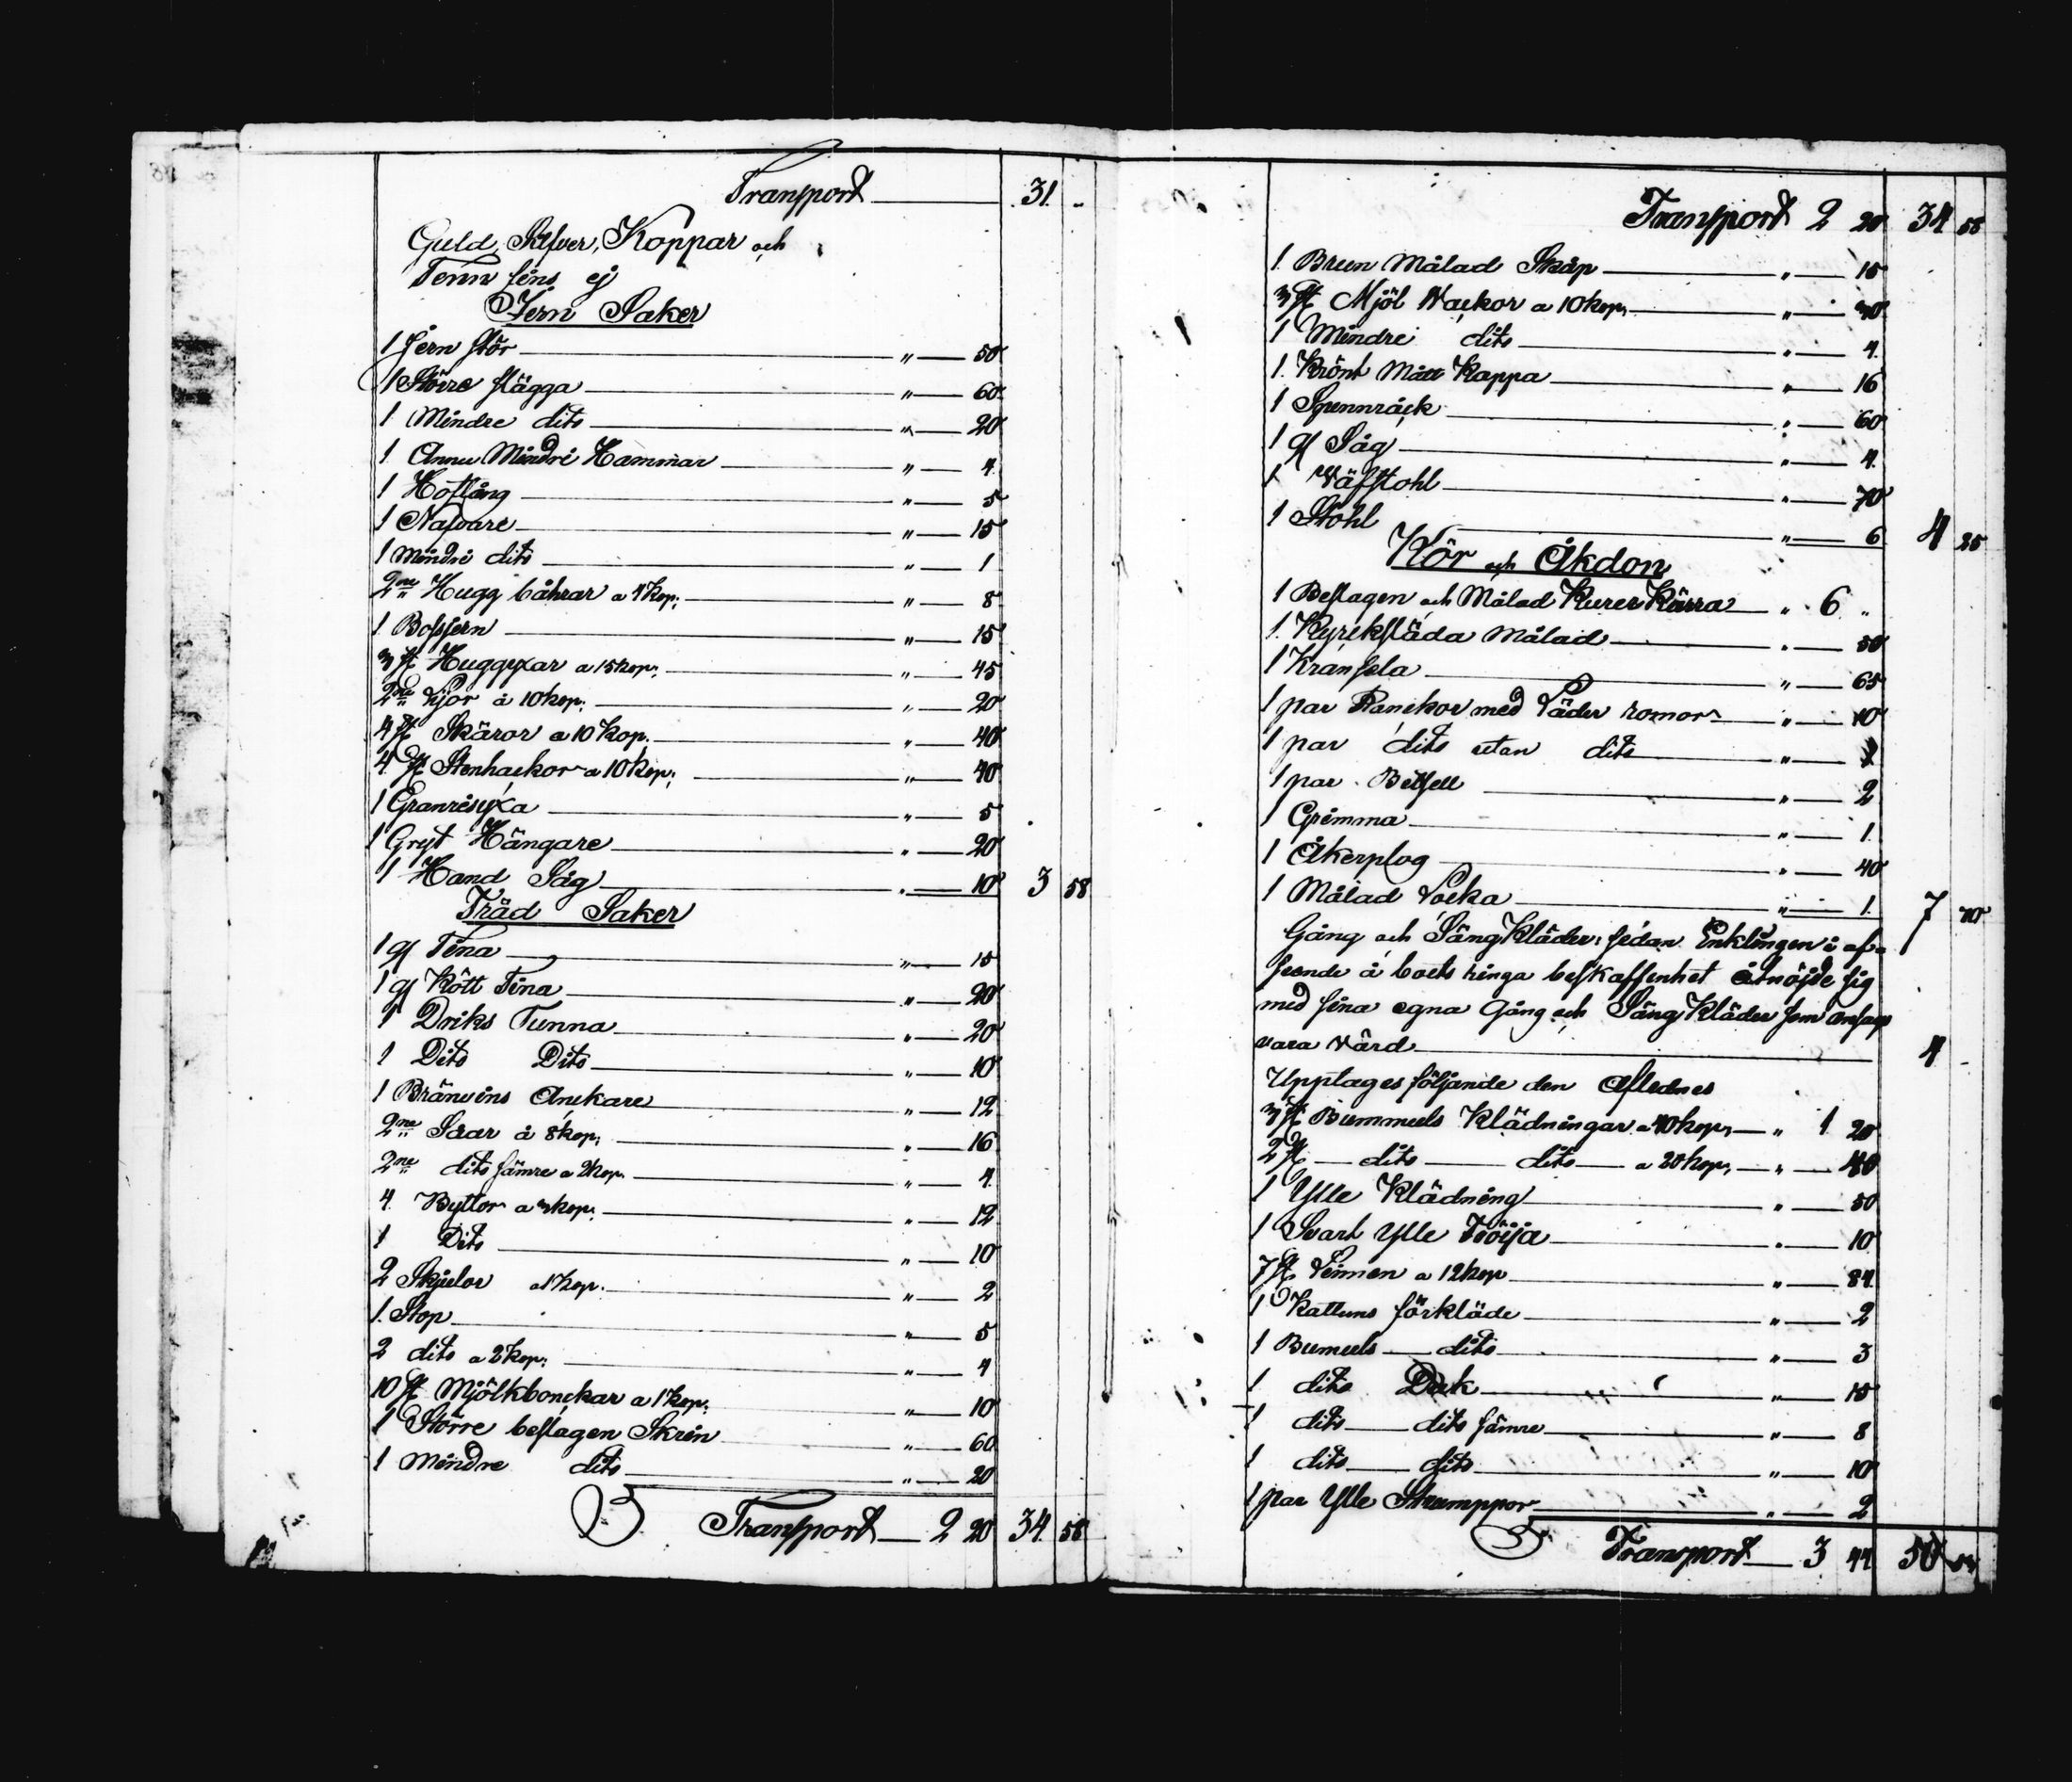 Transport 31 "
Guld, Silfver, Koppar och
Tenn fins ej
Jern Saker
1 Jern stör " 50
1 Större slägga " 60
1 Mindre dito " 20
1 Annu Mindre Hammar " 4
1 Hoftång " 5
1 Nafvare " 15
1 Mindre dito " 1
2ne Hugg båhrar a 4 kop; " 8
1 Bossjern " 15
3 st Huggyxar a 15 kop; " 45
2ne Ljor á 10 kop; " 20
4 st Skäror a 10 kop. " 40
4 st Stenhackor a 10 kop; " 40
1 Granrisyxa " 5
1 Gryt Hängare " 20
1 Hand Såg " 10 3 58
Träd Saker
1 gl Tina " 15
1 gl Kött Tina " 20
1 Driks Tunna " 20
1 Dito Dito " 10
1 Bränvins Anckare " 12
2ne Såar á 8 kop; " 16
2ne dito sämre a 2 kop. " 4
4 Byttor a 3 kop; " 12
1 Dito " 10
2 Skjulor a 1 kop. " 2
1 Stop " 5
2 dito a 2 kop; " 4
10 st Mjölkbonckar a 1 kop; " 10
1 Större beslagen Skrin " 60
1 Mindre dito " 20
Transport 2 20 34 58
Transport 2 20 34 58
1 Brun Målad Skåp " 15
3 st Mjöl Wackor a 10 kop; " 30
1 Mindre dito " 4
1 Krönt Mått Kappa " 16
1 Spennråck " 60
1 gl Såg " 4
1 Wäfstohl " 70
1 Stohl " 6 4 25
Kör och Åkdon
1 Beslagen och Målad Kurer Kärra " 6 "
1 Kyrcksläda Målad " 50
1 Kransela " 65
1 par Ranckor med Läder romor " 10
1 par dito utan dito "
1 par Betsell " 2
1 Grimma " 1
1 Åkerplog " 40
1 Målad Locka " 1 7 70
Gång och Säng Kläder: sedan Enklingen i af=
seende å boets ringa beskaffenhet åtnöjde sig
med sina egna Gång och Säng Kläder som ansags
vara värd 4 -
Upptages följande den Aflednes
3 st Bummuls Klädningar a 40 kop; " 1 20
2 st dito dito a 20 kop; " 40
1 Ylle Klädning " 50
1 Svart Ylle Tröija " 10
7 st Linnen a 12 kop " 84
1 Kattuns förkläde " 2
1 Bumuls dito " 3
1 dito Duk " 15
1 dito dito sämre " 8
1 dito dito " 10
1 par Ylle Strumppor " 2
Transport 3 44 50